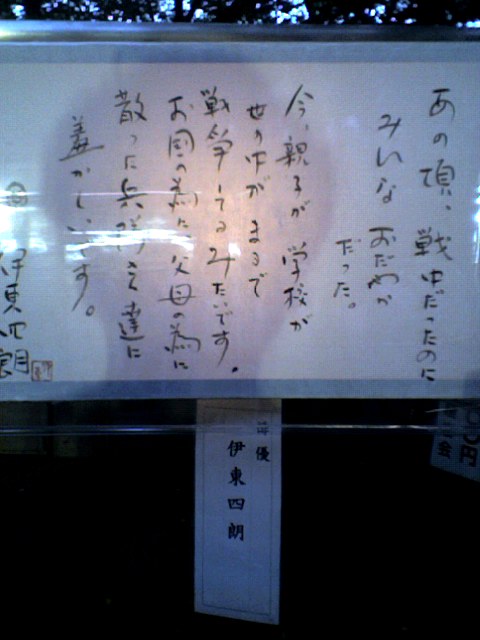 あの頃、戦中だったのに
みんな おだやか
だった。
今、親子が 学校が
世の中が まるで
戦争してるみたいです。
お国の為に、父母の為に
散った兵隊さん達に
羞かしいです。
伊東四朗
俳優
伊東四朗
円